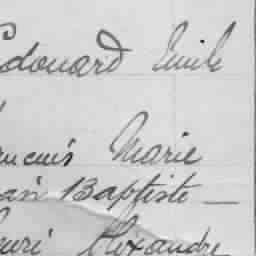 Edouard Emile
Francois Marie
Jean Baptiste —
Henri Alexandre